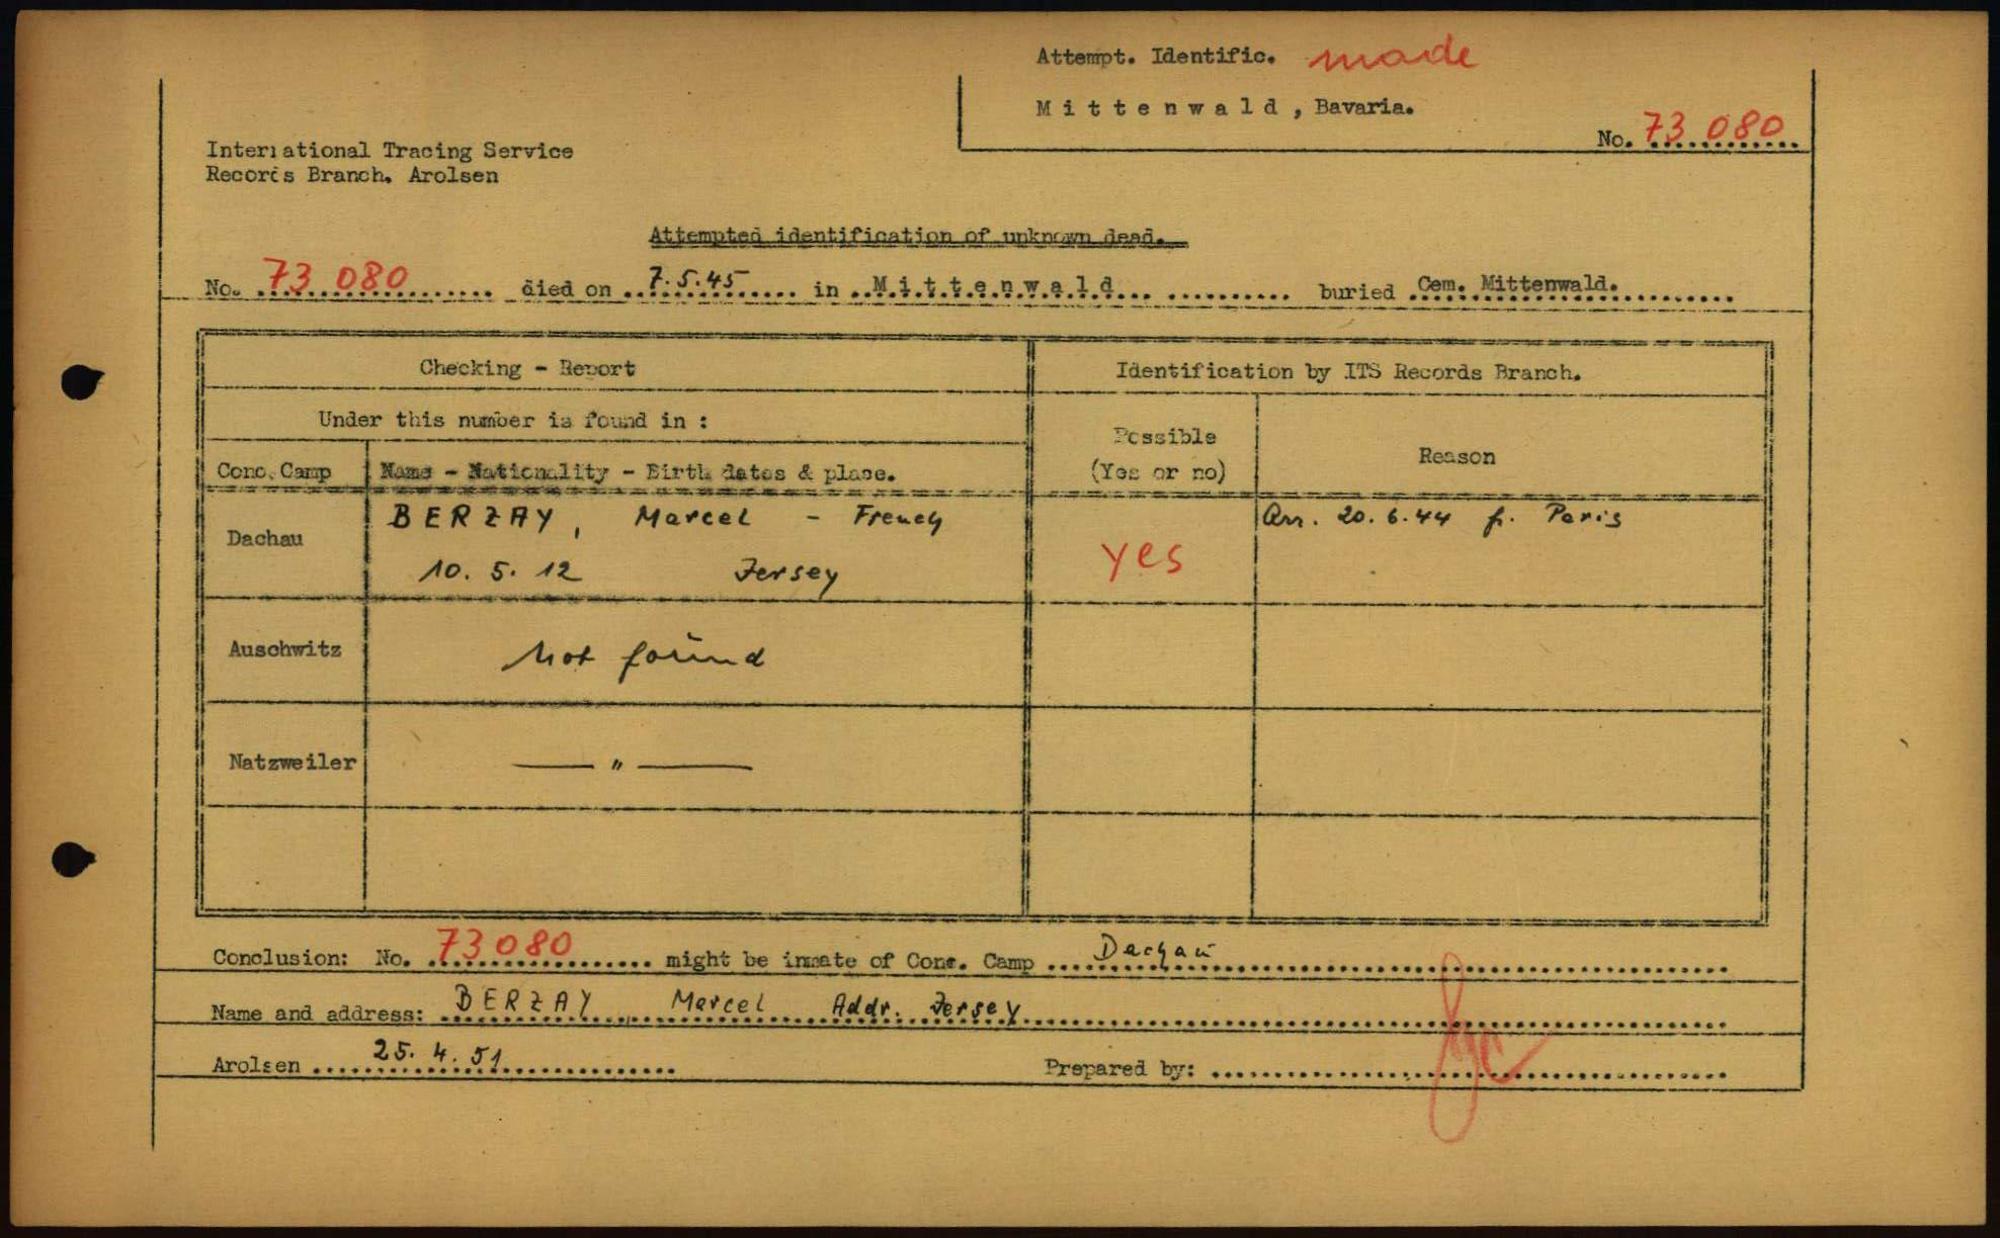 Attempt. Identific. made
Mittenwald, Bavaria.
No. 73 080
International Tracing Service
Records Branch. Arolsen
Attempted identification of unknown dead.
No. 73 080 died on 7.5.45 in Mittenwald buried Cem. Mittenwald.
Checking - Report
Identification by ITS Records Branch.
Under this number is found in :
Possible
(Yes or no)
Reason
Conc. Camp
Name - Nationality - Birth dates & place.
Dachau
BERZAY, Marcel - French
10. 5. 12 Jersey
yes
Arr. 20.6.44 fr. Paris
Auschwitz
Not found
Natzweiler
— " —
Conclusion: No. 73080 might be inmate of Conc. Camp Dachau
Name and address: BERZAY Marcel Addr. Jersey
Arolsen 25. 4. 51
Prepared by: